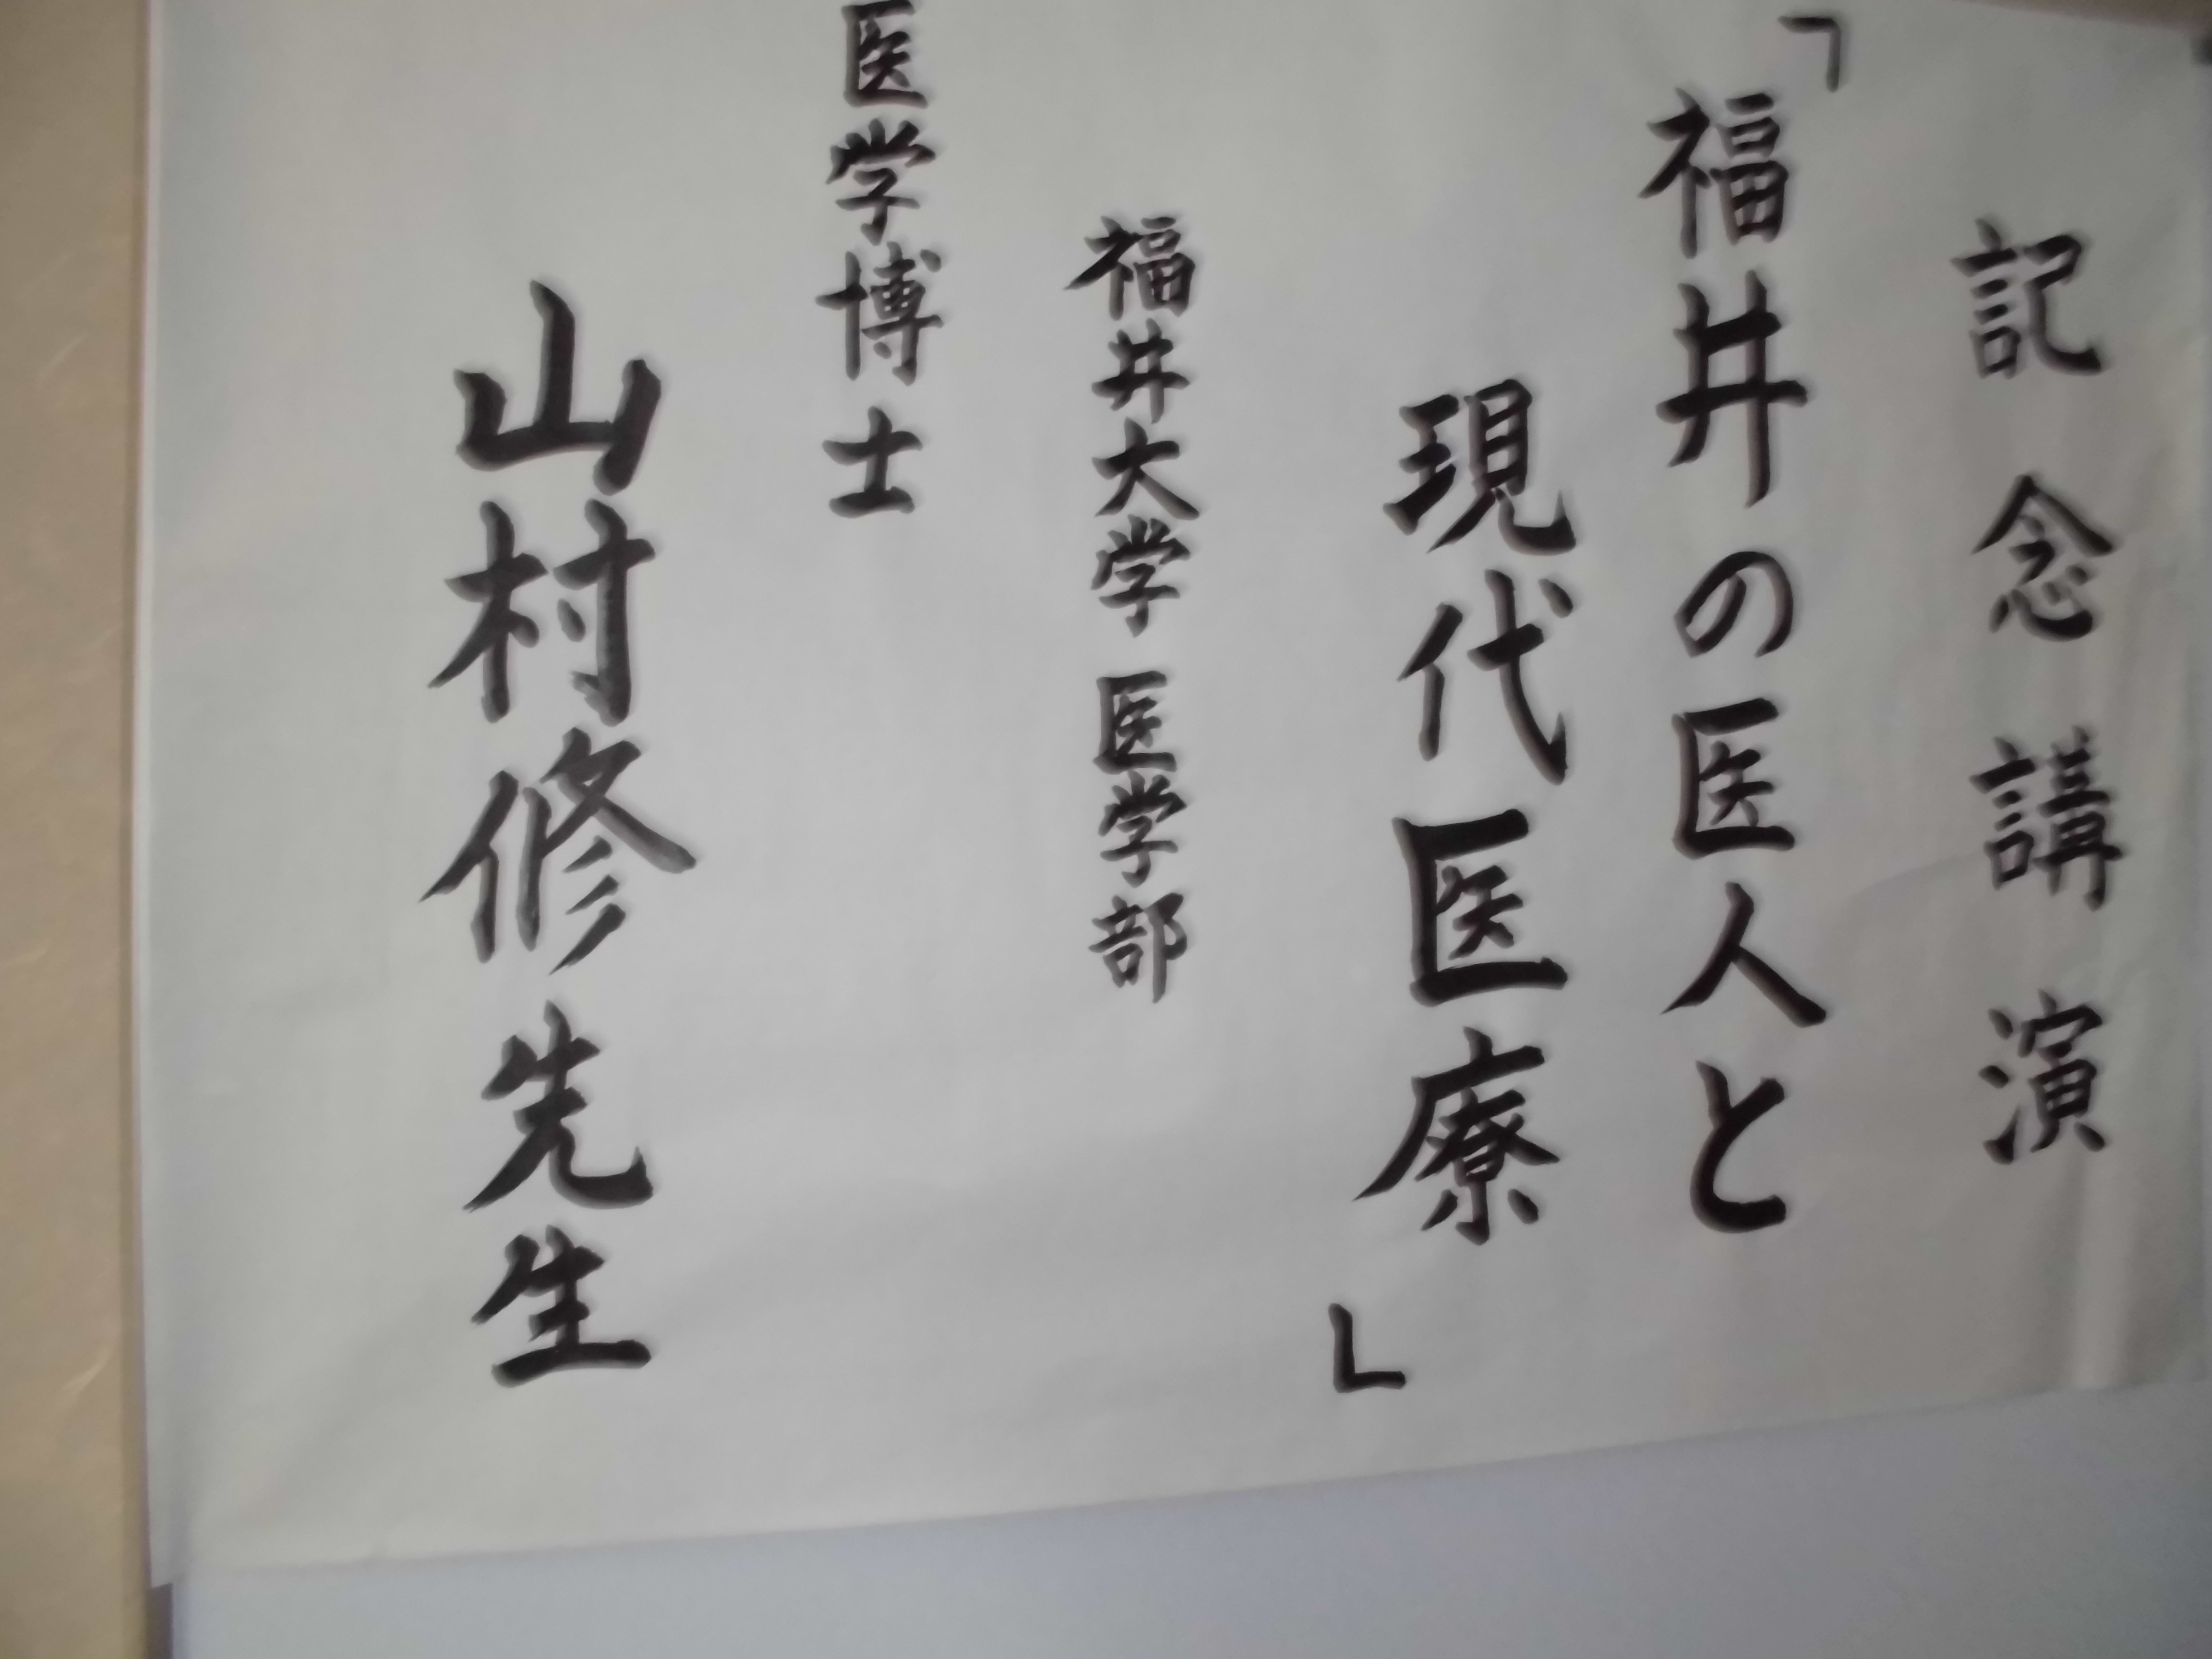 記念講演
「福井の医人と
現代医療」
福井大学 医学部
医学博士
山村修先生